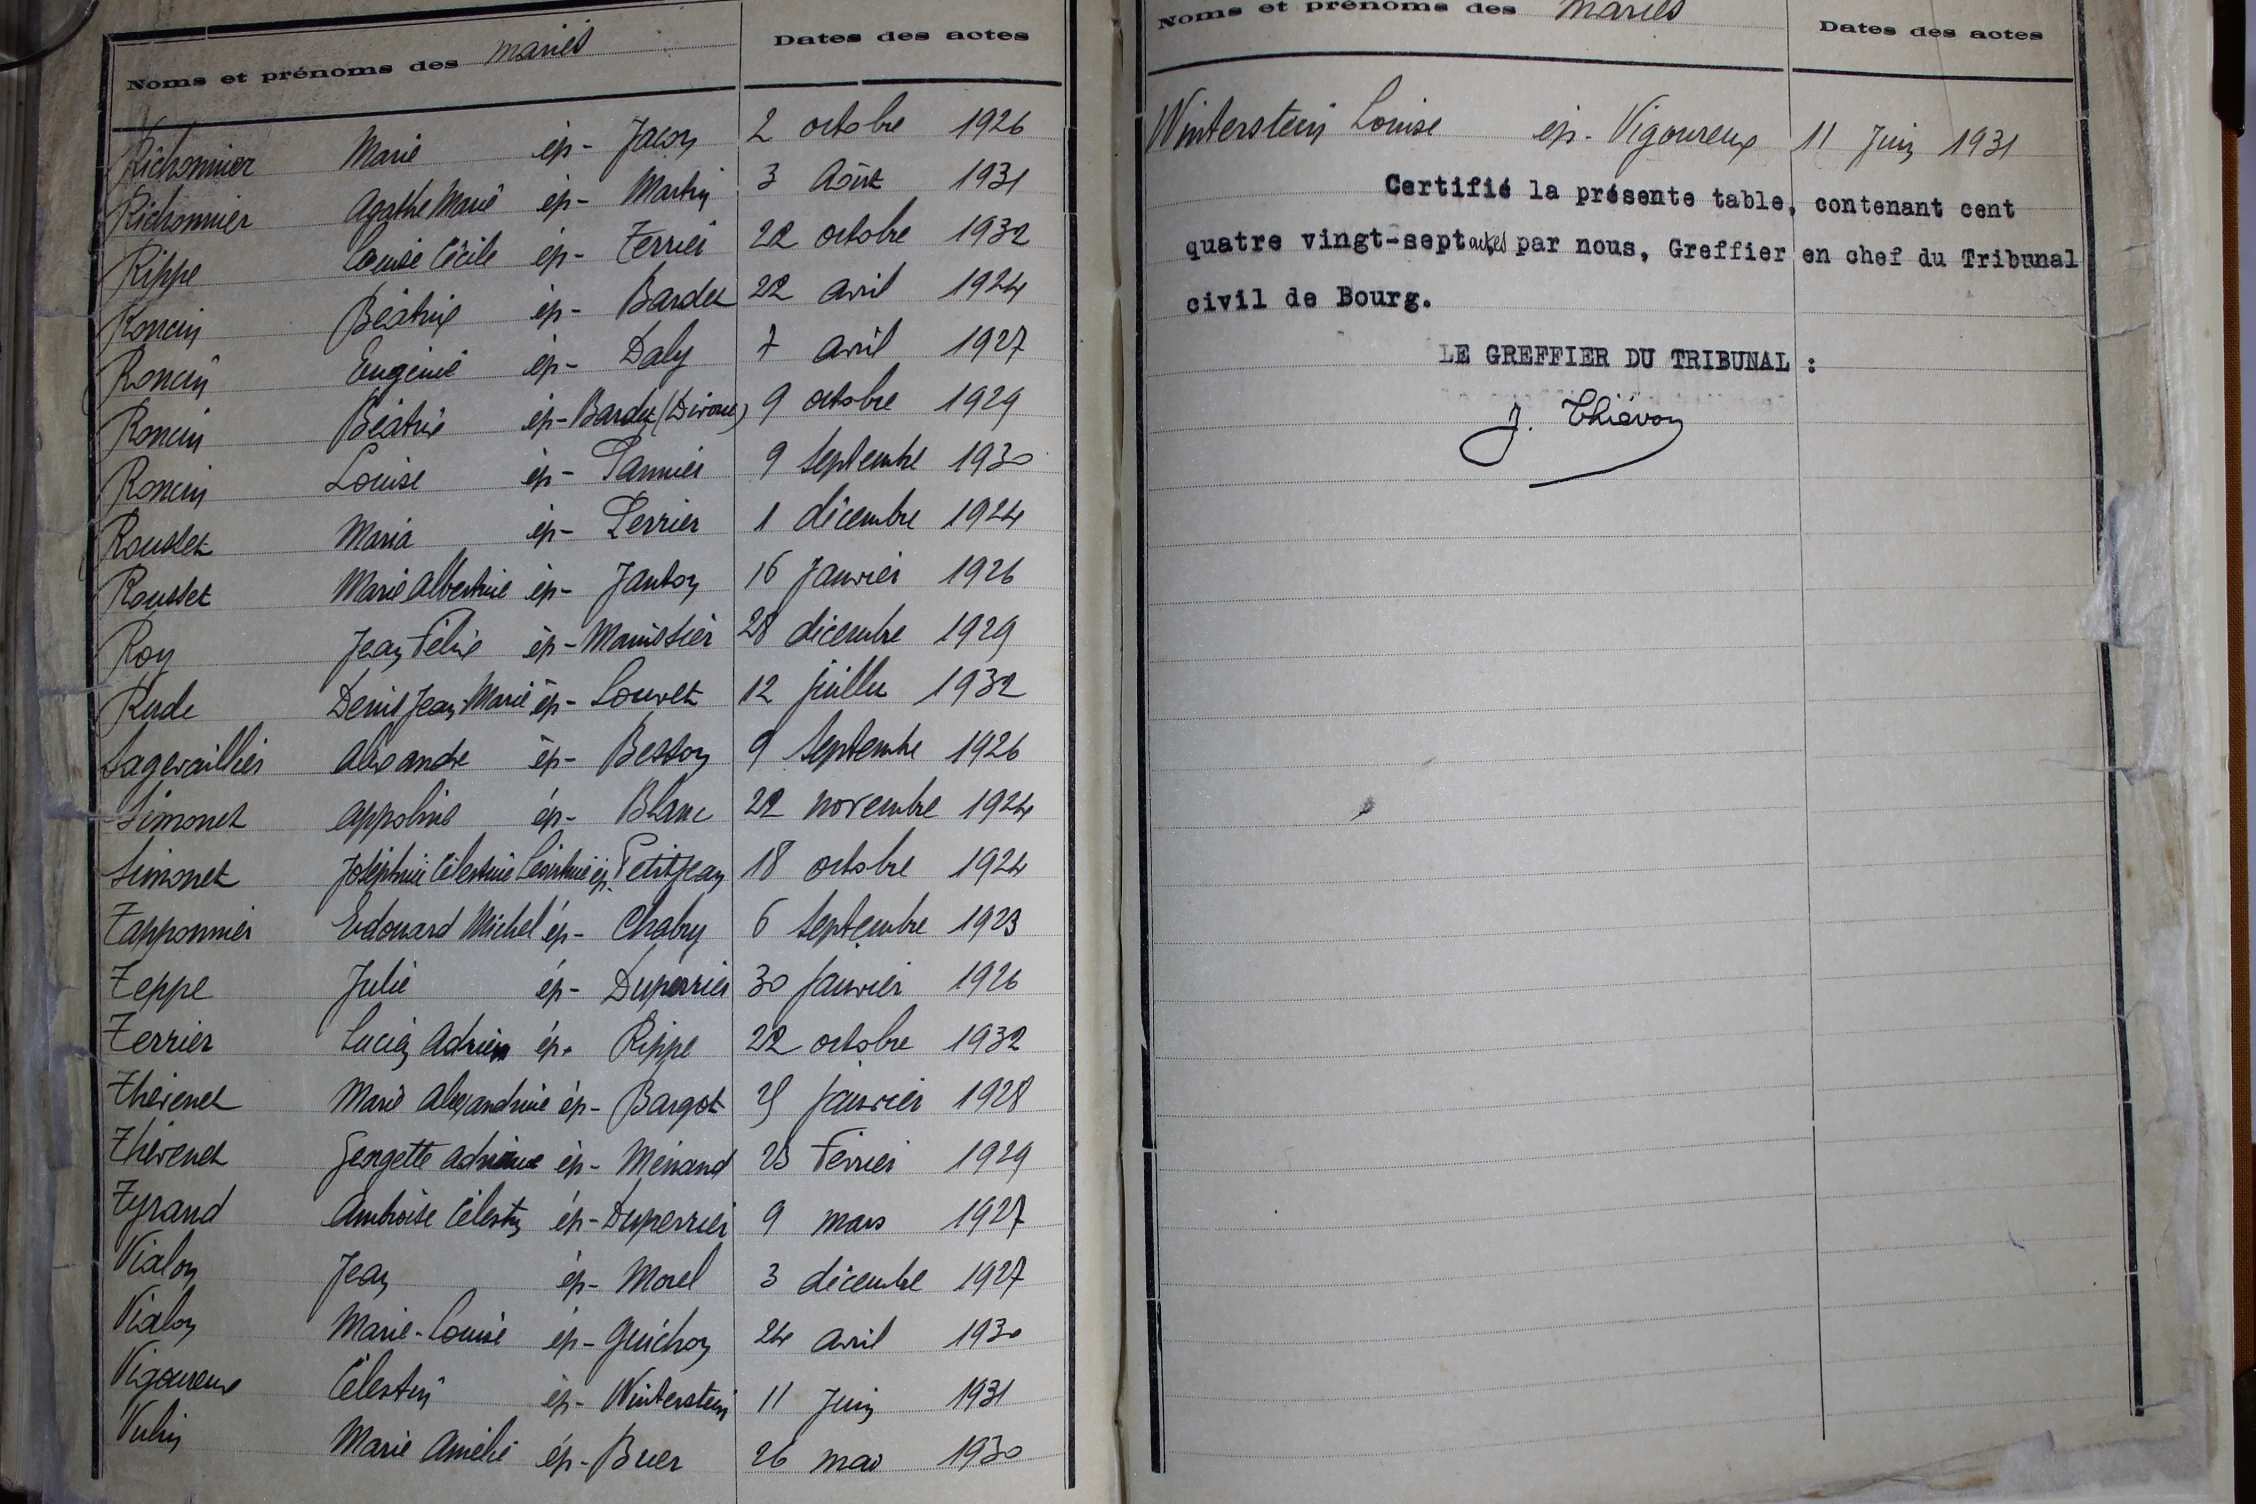 Noms et prénoms des mariés Dates des actes
Richonnier Marie ép- Jacon 2 octobre 1926
Richonnier Agathe Marie ép- Martin 3 Août 1931
Rippe Louise Cécile ép- Terrier 22 octobre 1932
Roncin Béatrix ép- Bardet 22 avril 1924
Roncin Eugénie ép- Daly 7 avril 1927
Roncin Béatrix ép- Bardet (Divorce) 9 octobre 1929
Roncin Louise ép- Pannier 9 septembre 1930
Rousset Maria ép- Perrier 1 décembre 1924
Rousset Marie Albertine ép- Janton 16 Janvier 1926
Roy Jean Félix ép- Manissier 28 décembre 1929
Rude Denis Jean Marie ép- Louvet 12 juillet 1932
Sagevaillier Alexandre ép- Besson 9 septembre 1926
Simonet Appoline ép- Blanc 22 novembre 1924
Simonet Joséphine Célestine Léontine ép. Petitjean 18 octobre 1924
Tapponnier Edouard Michel ép- Chabry 6 septembre 1923
Teppe Julie ép- Duperrier 30 janvier 1926
Terrier Lucien Adrien ép. Rippe 22 octobre 1932
Thévenet Marie Alexandrine ép- Bargot janvier 1928
Thévenet Georgette Adrienne ép- Ménand 23 Février 1929
Tyrand Ambroise Célestin ép- Duperrier 9 mars 1927
Vialon Jean ép- Morel 3 décembre 1927
Vialon Marie-Louise ép- Guichon 24 avril 1930
Vigoureux Célestin ép- Winterstein 11 Juin 1931
Vulin Marie Amélie ép- Buer 26 mars 1930
Noms et prénoms des mariés Dates des actes
Winterstein Louise ép- Vigoureux 11 Juin 1931
Certifié la présente table, contenant cent
quatre vingt-sept actes par nous, Greffier en chef du Tribunal
civil de Bourg.
LE GREFFIER DU TRIBUNAL :
J. Thiévon